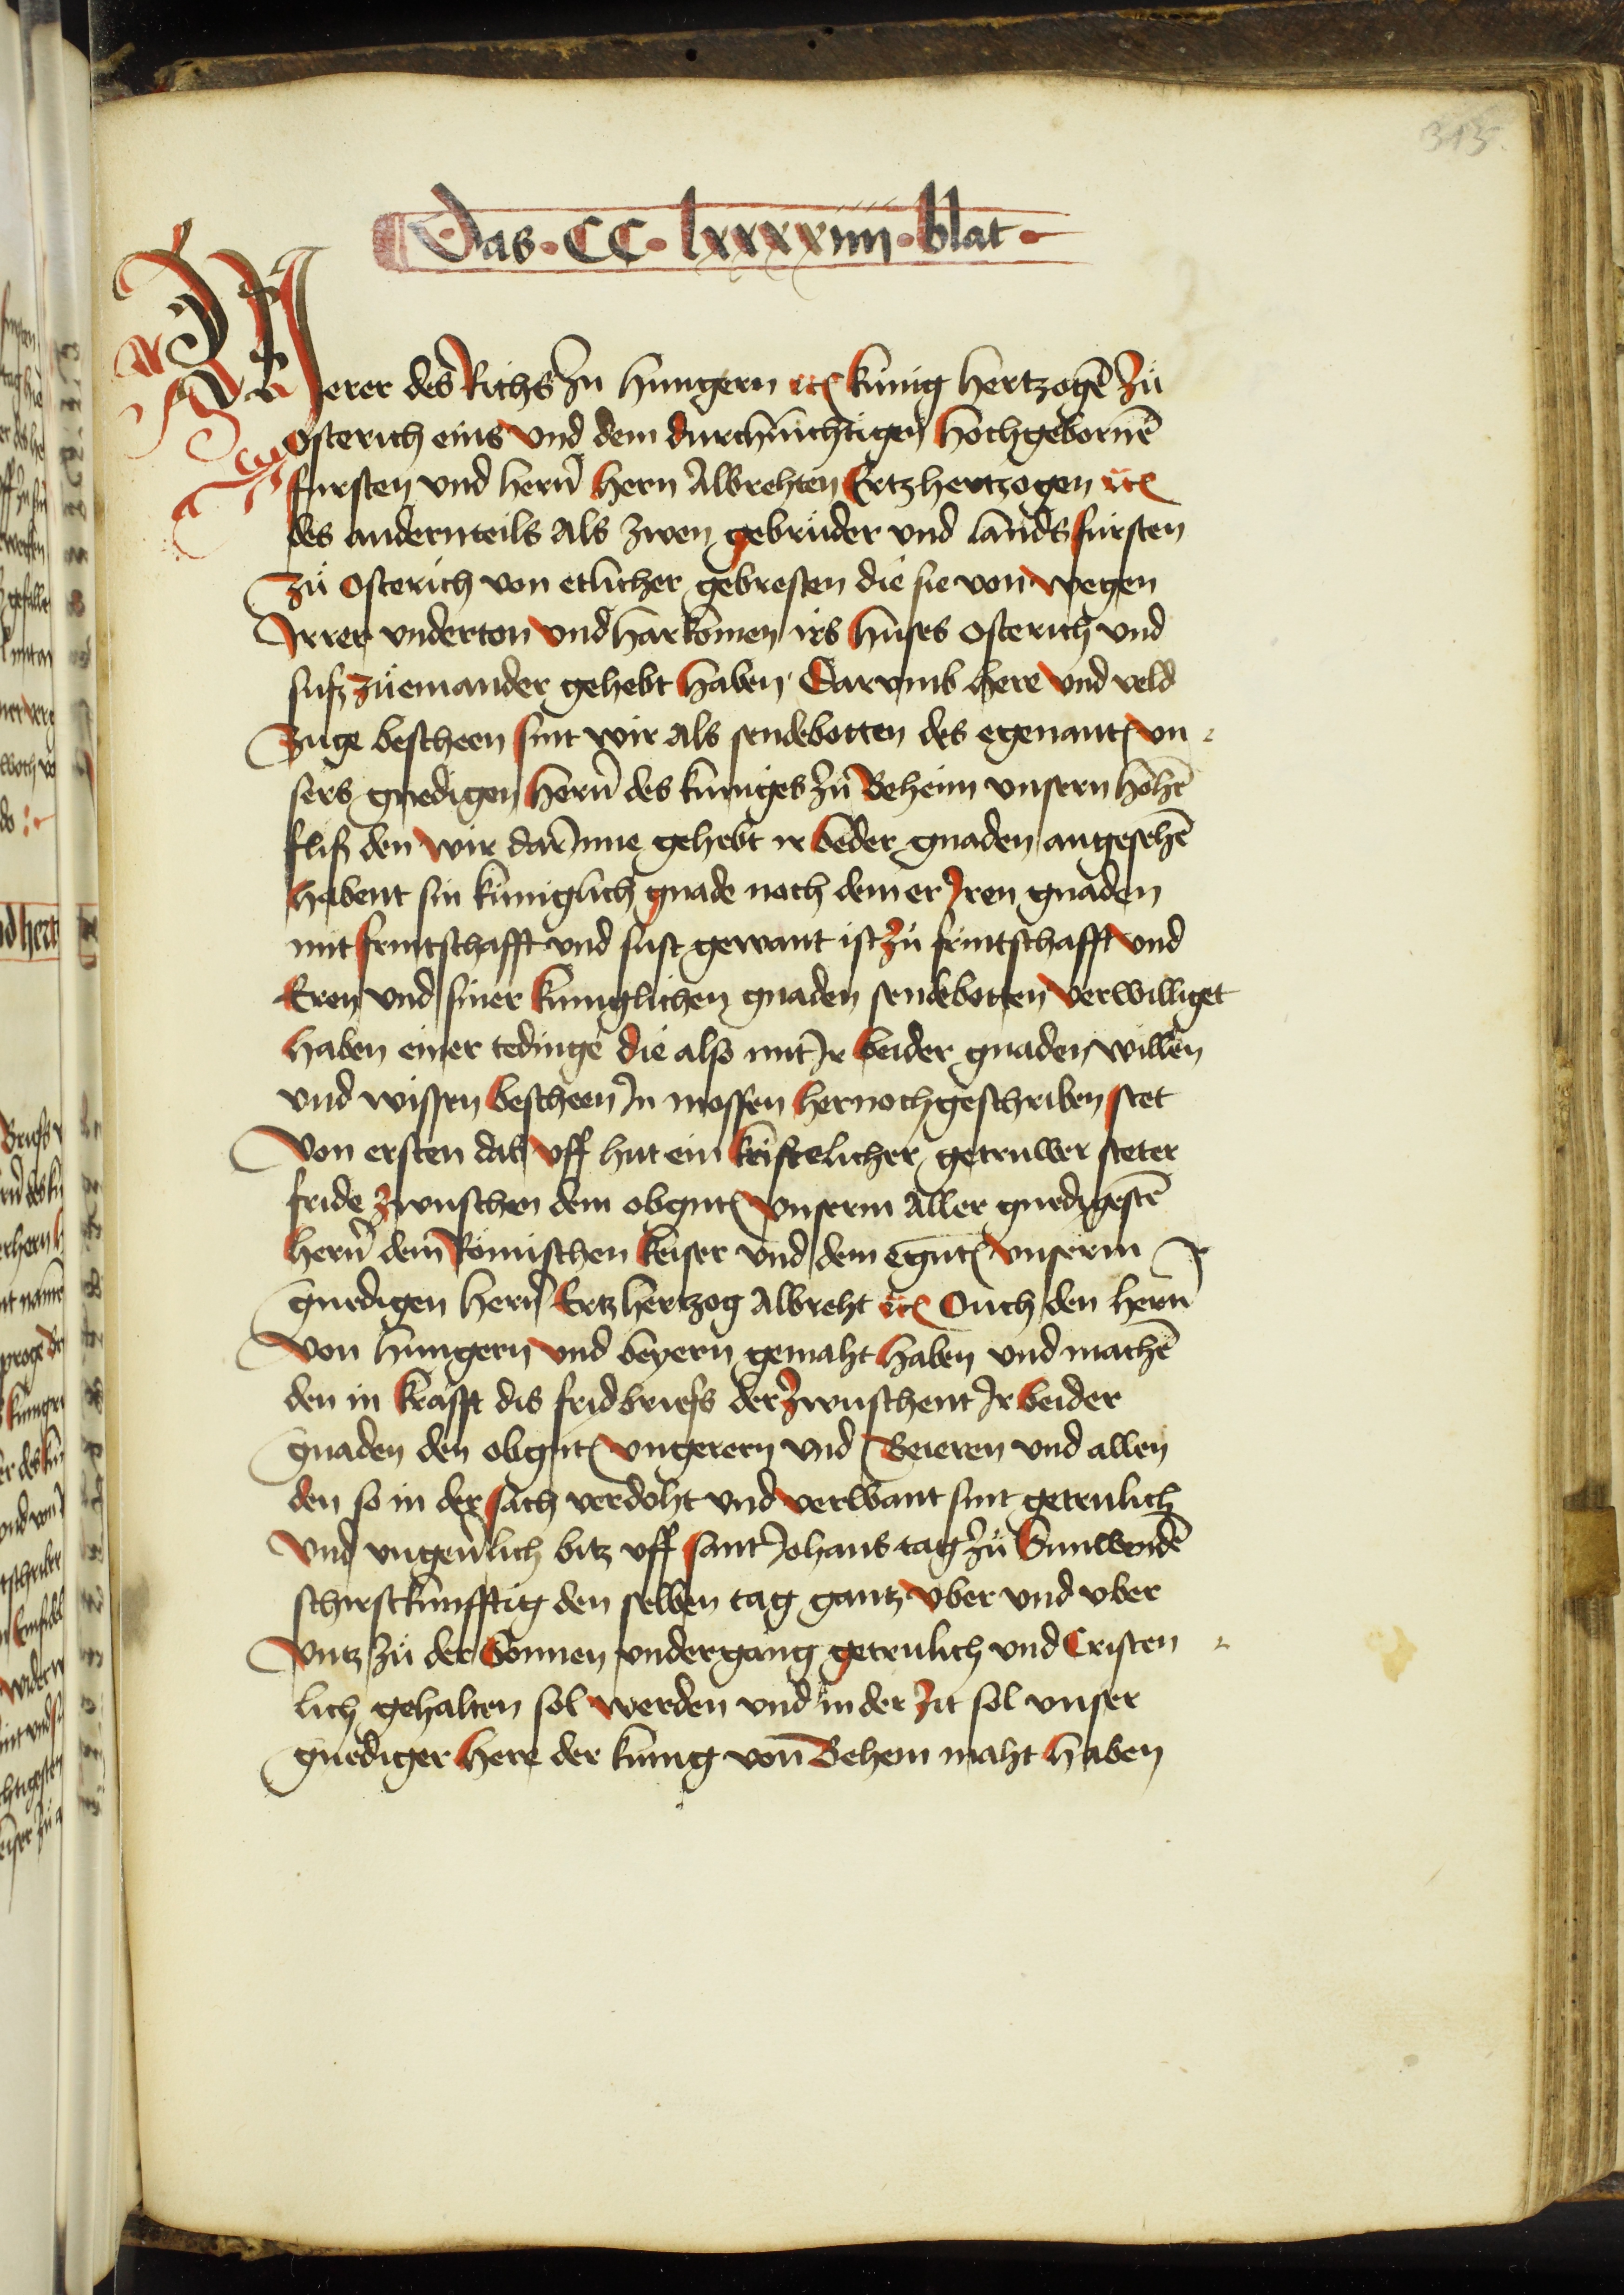 315.
Das · CC · lxxxxiiii · blat ·
Merer des Richs In hungern etc kunig hertzogē Zů
Osterich eins Vnd dem durchluchtigen hochgebornē
fursten vnd hern̄ hern Albrehten Ertzhertzogen etc
des andernteils Als zwen gebruder vnd lands fursten
Zů Osterich von etlicher gebresten die sie von wegen
Irrer vnderton vnd harkomen irs huses Osterich vnd
susz zůeinander gehebt haben Darvmb here vnd veld
Zuge bescheen sint wir Als sendebotten des egenantē vn
sers gnedigen hern̄ des kuniges Zů Beheim vnsern hohē
flisz den wir darInne gehebt ir beder gnaden angesehē
habent sin kuniglich gnade noch dem er Iren gnaden
mit fruntschafft vnd sust gewant ist Zů fruntschafft vnd
Eren vnd siner kuniglichen gnaden sendebotten verwilliget
haben einer tedinge die also mit Ir beider gnaden willen
vnd wissen bescheen In mossen hernochgeschriben stet
Von ersten das vff hut ein kristelicher getruwer steter
fride zwuschen dem obgntē vnserm Aller gnedigestē
hern̄ dem Romischen keiser vnd dem egntē vnserm
gnedigen hern̄ Ertzhertzog Albreht etc Ouch den hern̄
von hungern vnd beyern gemaht haben vnd machē
den in krafft dis fridbriefs der zwuschent Ir beider
gnaden den obgntē vngerern vnd Beieren vnd allen
den so in der sach verdoht vnd verwant sint getrulich
Vnd vngeuͤrlich bitz vff sant Johans tag zů Sunwendē
schirstkunfftig den selben tag gantz vber vnd vber
Vntz zů der Sonnen vndergang getrulich vnd Cristen
lich gehalten sol werden vnd in der Zit sol vnser
gnediger here der kunig von Behem maht haben